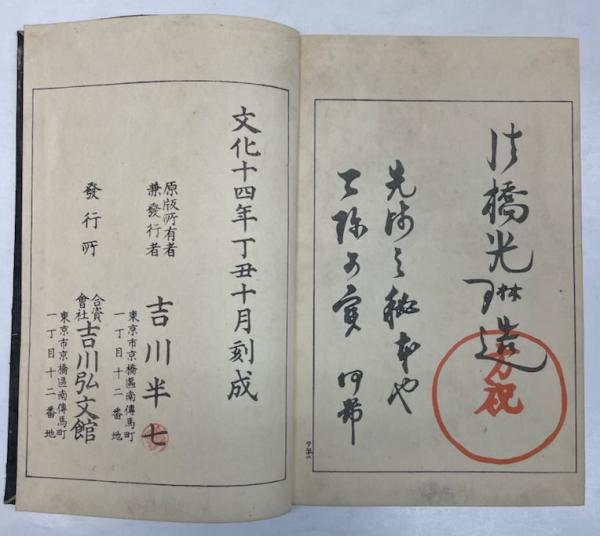 法橋光琳造
方祝
先師之秘本也
文化十四年丁丑十月刻成
原版所有者
兼發行者
吉川半七
東京市京橋區南傳馬町
一丁目十二番地
發行所
合資
會社
吉川弘文館
東京市京橋區南傳馬町
一丁目十二番地